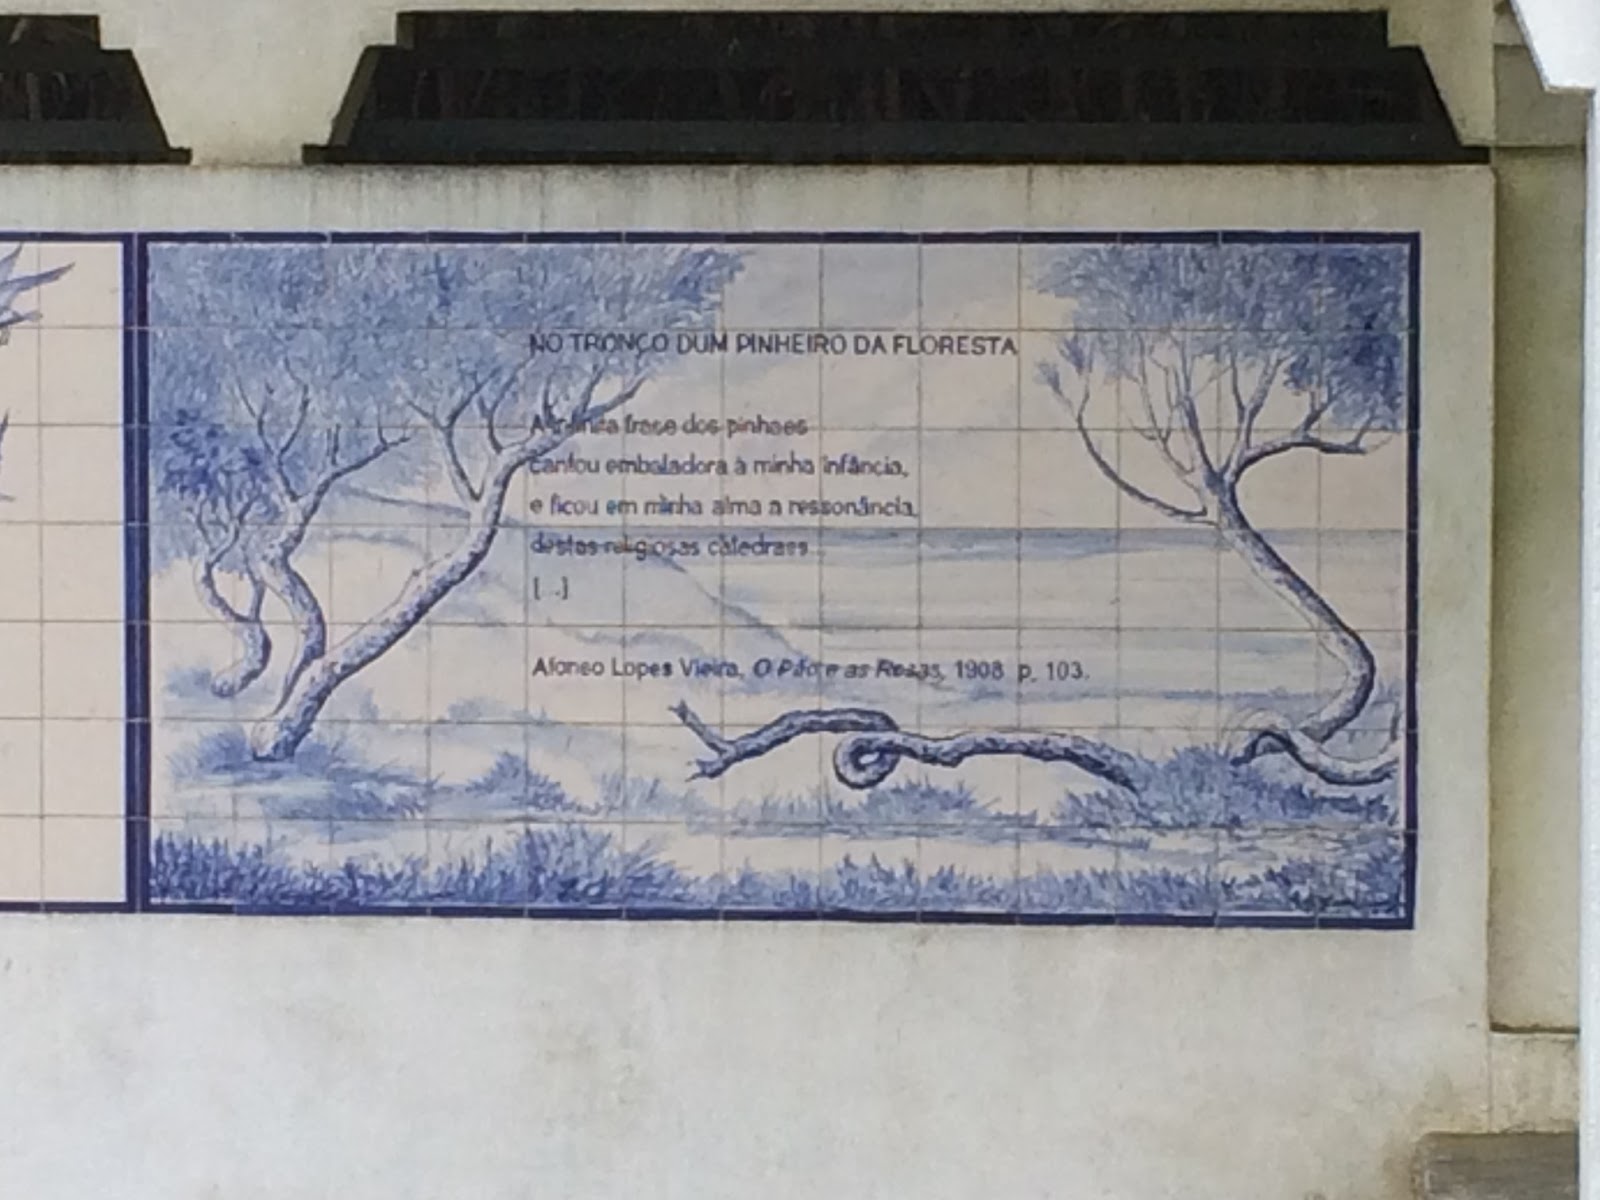 NO TRONCO DUM PINHEIRO DA FLORESTA
A infinita frase dos pinhaes
cantou embaladora à minha infância,
e ficou em minha alma a ressonância
destas religiosas catedraes...
[...]
Afonso Lopes Vieira, O Pão e as Rosas, 1908 p. 103.